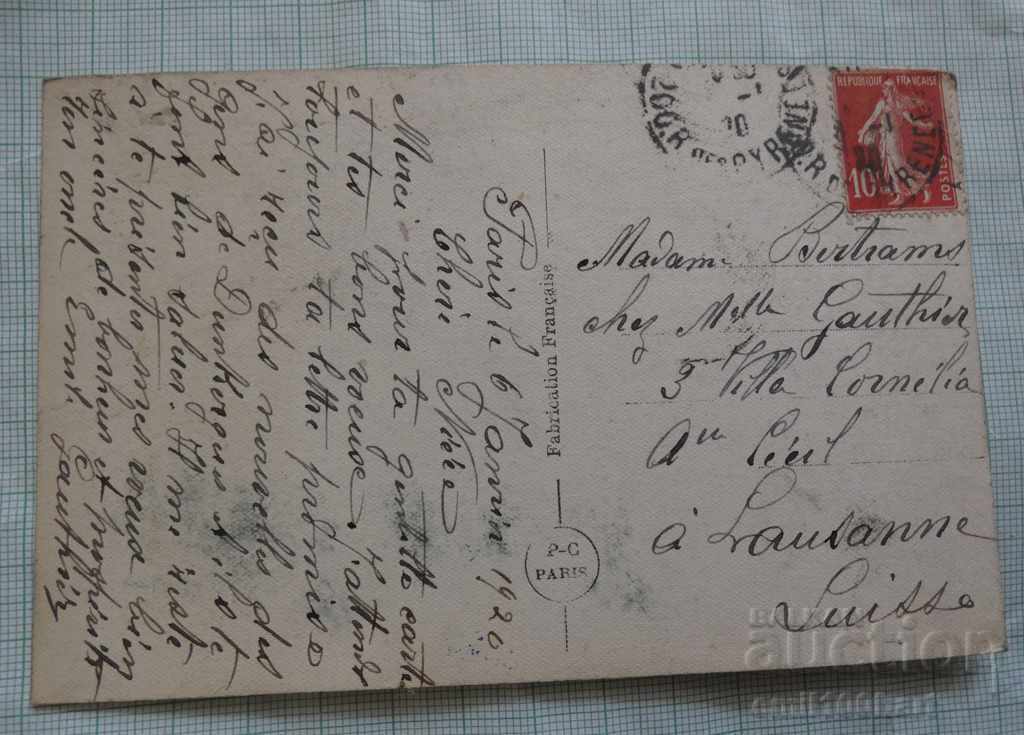 Paris le 6 Janvier 1920
Cheri Mère
Merci pour ta gentille carte
et tes bons voeux. J'attends
toujours ta lettre promise
j'ai reçu des nouvelles des
Gens de Dunkerque et ils te
font bien saluer. Il me reste
a te présenter mes voeux bien
sincères de bonheur et prospérité
Ton Emil.
Gauthier
Fabrication Française
P-C
PARIS
REPUBLIQUE FRANÇAISE
10
POSTES
20
R. DES PYRENEES
Madame Bertrams
chez Melle Gauthier
5 Villa Cornélia
Av. Cécil
à Lausanne
Suisse
auction
emil1000.art